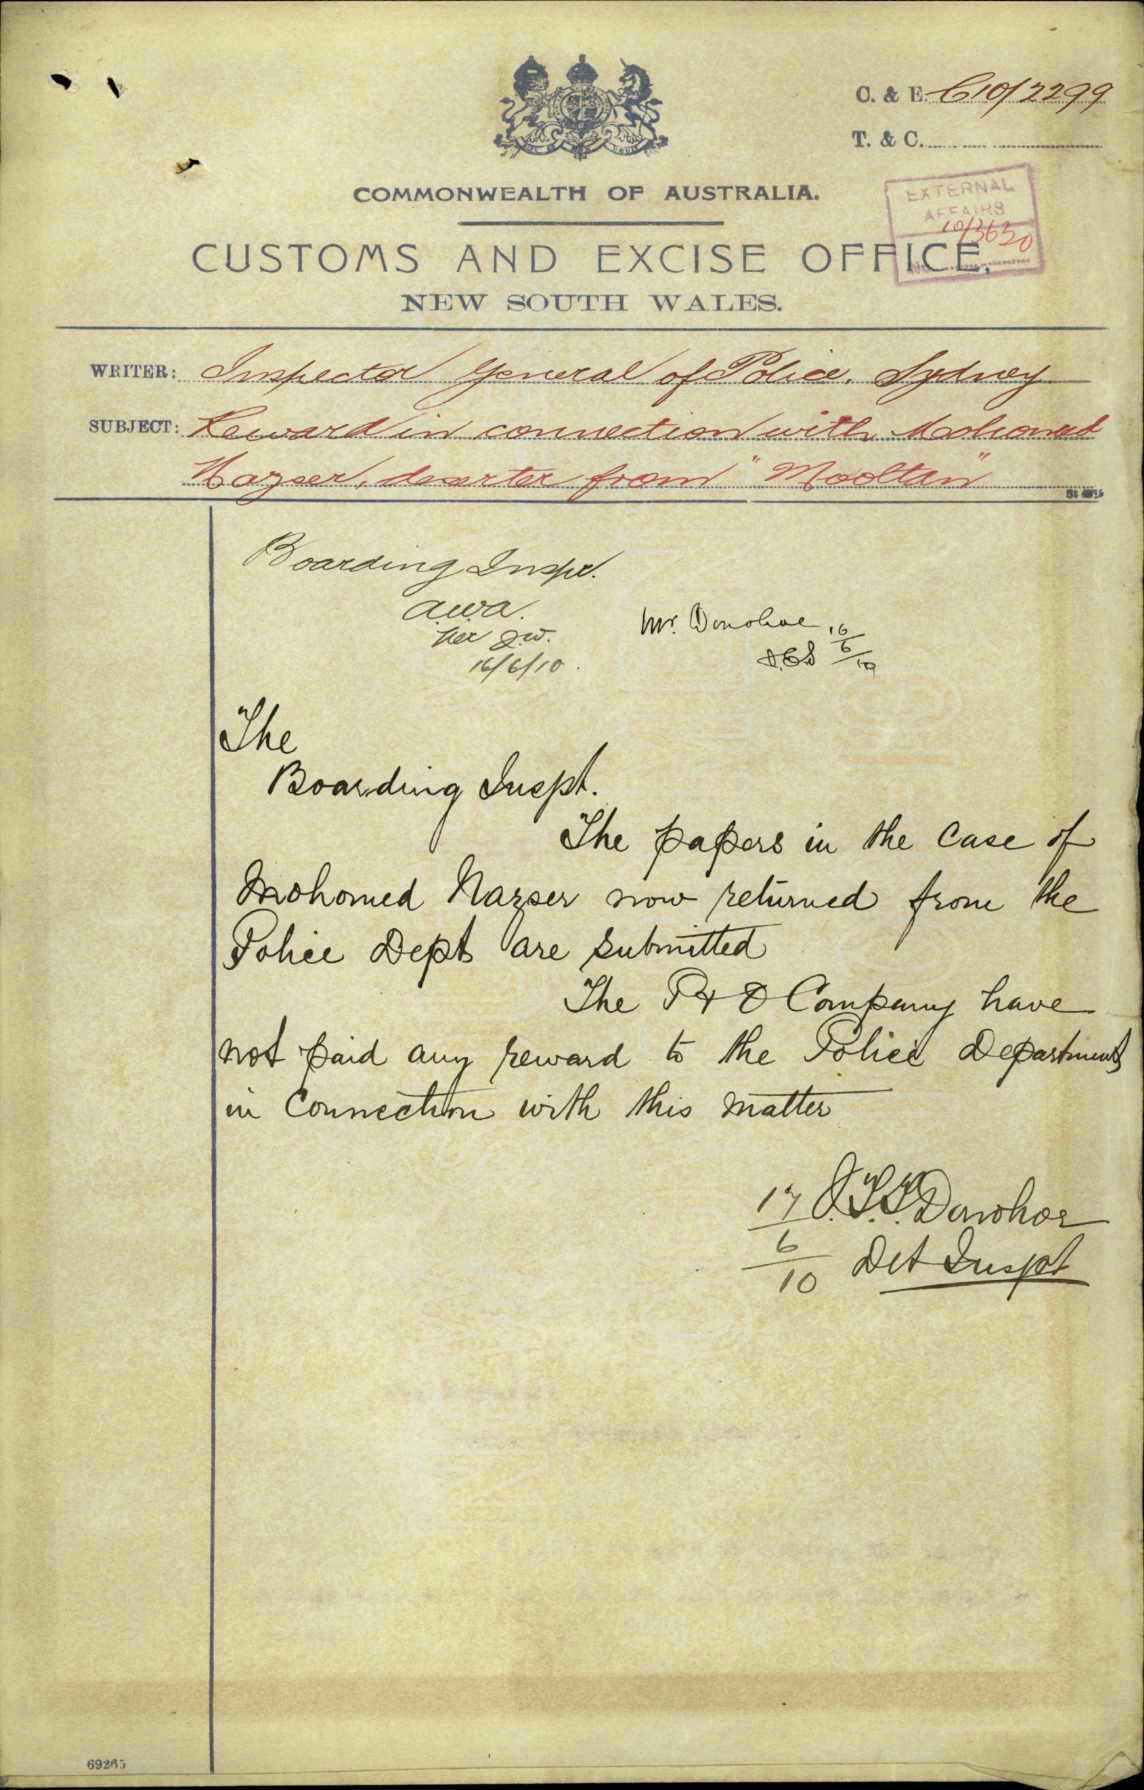 C. & E. C10/2299
T. & C.
EXTERNAL
AFFAIRS
10/3630
COMMONWEALTH OF AUSTRALIA.
CUSTOMS AND EXCISE OFFICE,
NEW SOUTH WALES.
WRITER: Inspector General of Police, Sydney
SUBJECT: Reward in connection with Mohomed
Nazser, deserter from "Mooltan"
Boarding Inspr.
a.w.a.
16/6/10.
Mr. Donohoe 16/6/10
The
Boarding Inspt.
The papers in the case of
Mohomed Nazser now returned from the
Police Dept are submitted
The P & O Company have
not paid any reward to the Police Department
in connection with this matter
17/6/10 J.T.T. Donohoe
Det Inspt
69265